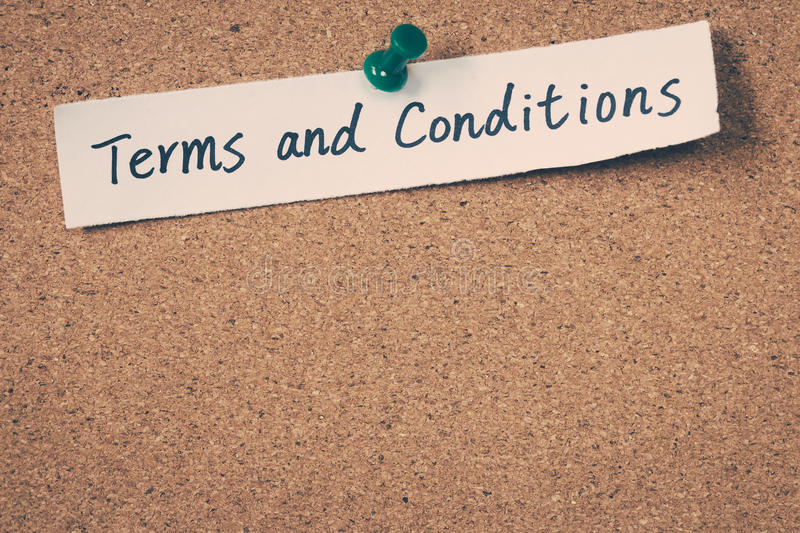 Terms and Conditions
dreamstime